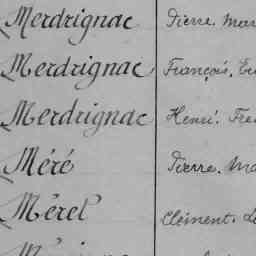 Merdrignac Pierre. Mar
Merdrignac François. Eu
Merdrignac Henri. Fra
Méré Pierre. Ma
Mérel Clément. L